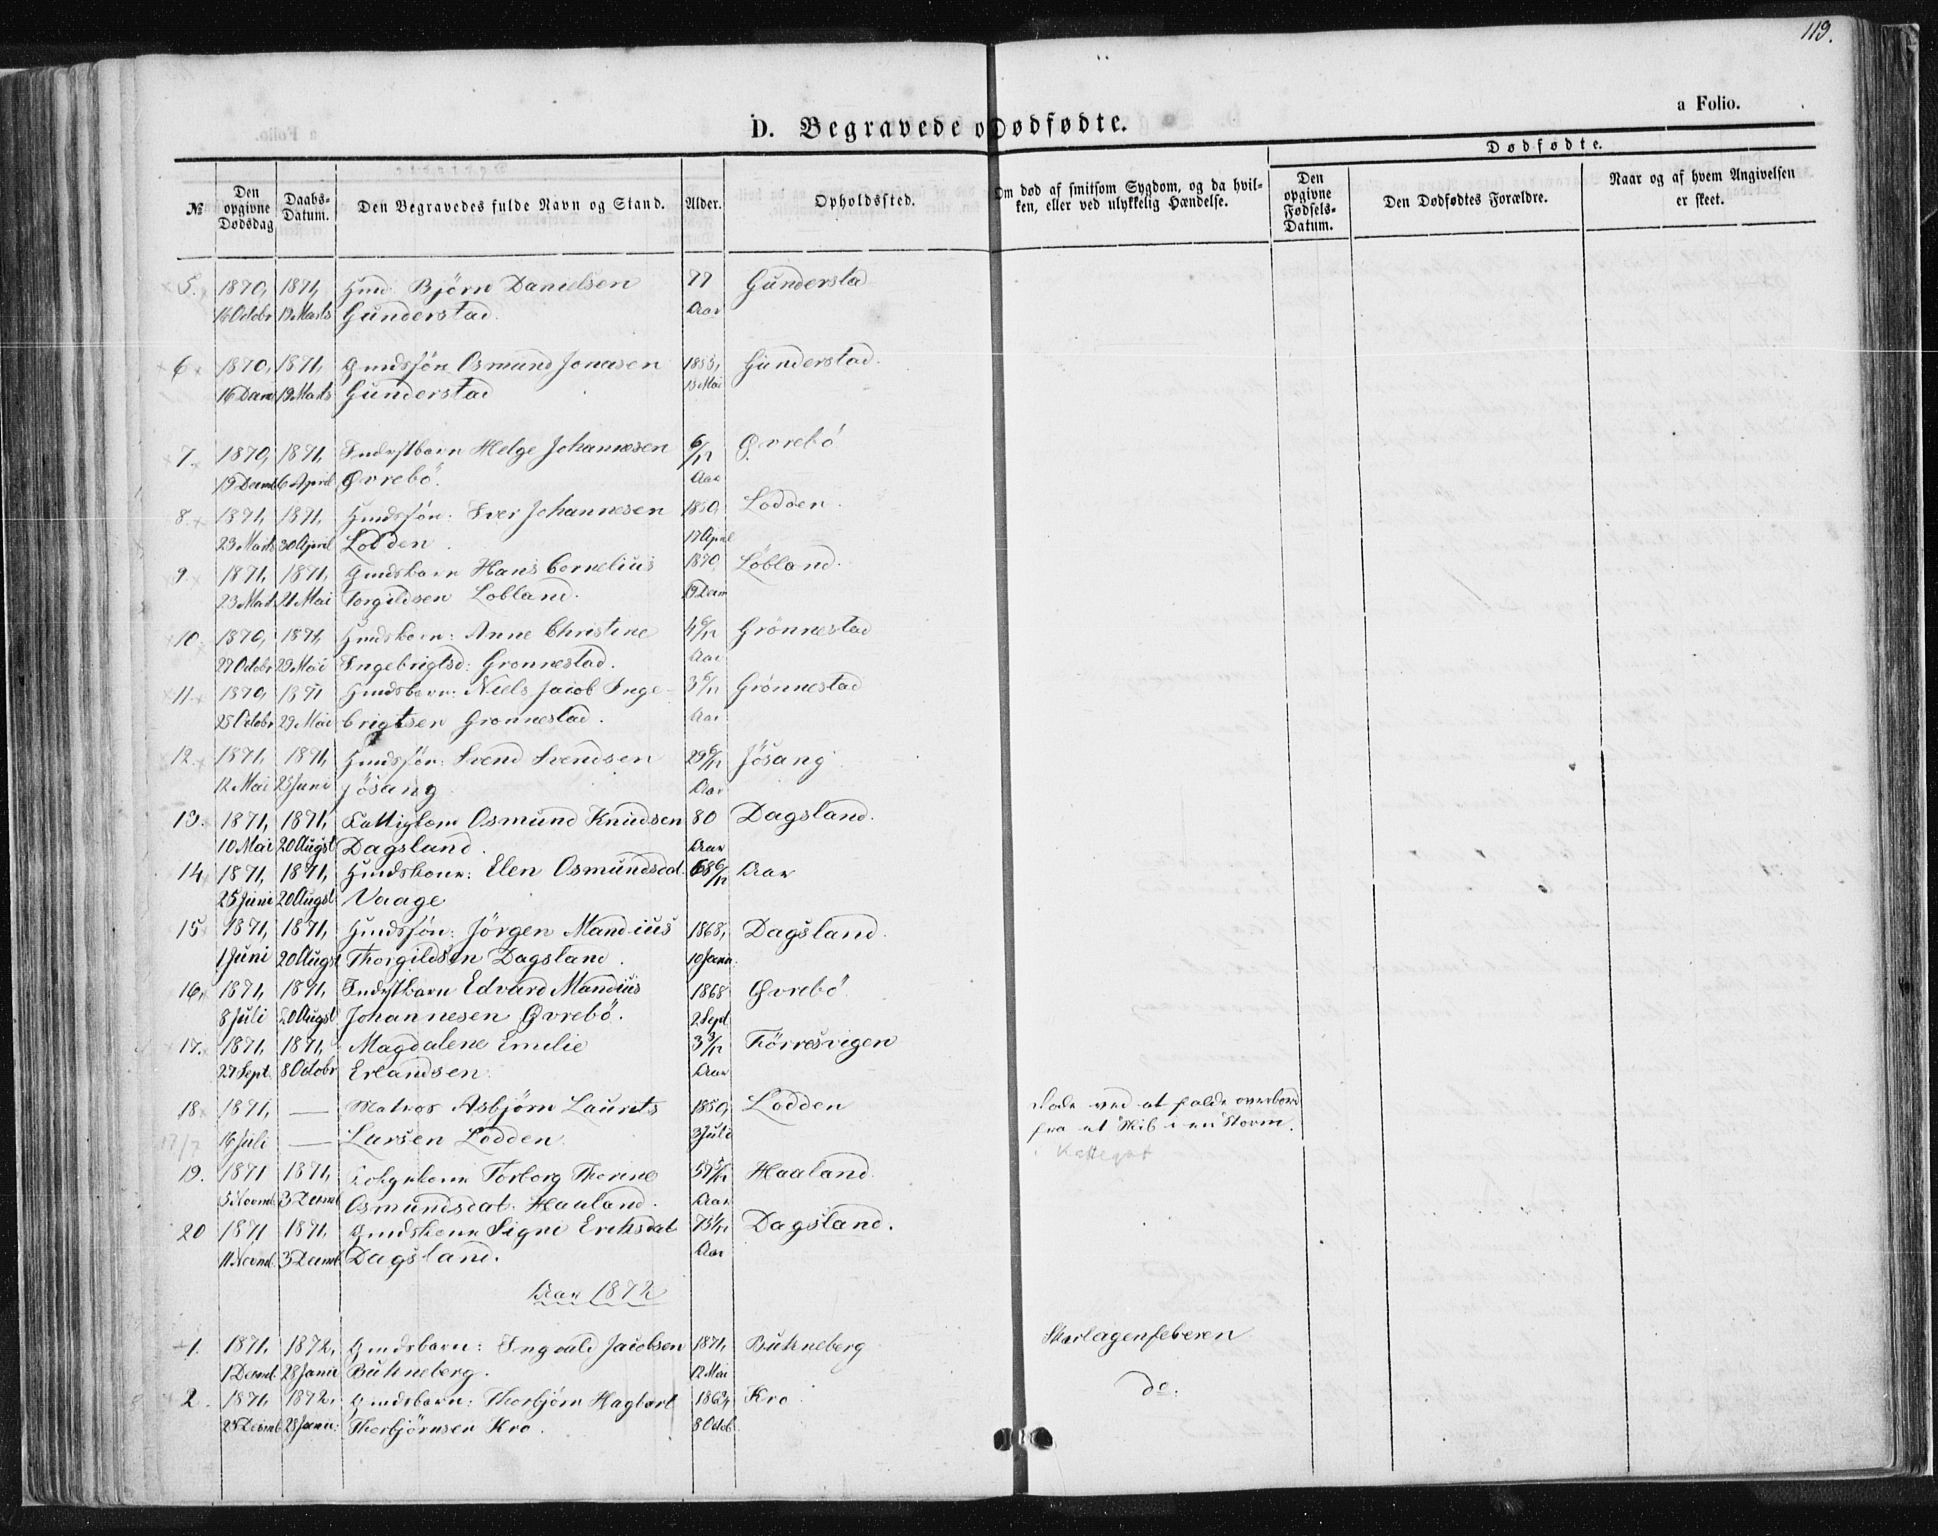 119.
a Folio.
D. Begravede o Dødfødte.
Dødfødte.
№ Den opgivne Dødsdag Daabs-Datum. Den Begravedes fulde Navn og Stand. Alder. Opholdssted. Om død af smitsom Sygdom, og da hvilken, eller ved ulykkelig Hændelse. Den opgivne Fødsels-Datum. Den Dødfødtes Forældre. Naar og af hvem Angivelsen er skeet.
5. 1870, 1871, Gmd: Björn Danielsen 77 Gunderstad
16 Octobr 19 Marts Gunderstad. Aar
6 1870, 1871, Gmdssön Osmund Jonasen 1853, Gunderstad.
16 Decem 19 Marts Gunderstad 15 Mai
7. 1870, 1871, Indstbarn Helge Johannesen 6/12 Øvrebö
19 Decemb 6 April Øvrebö. Aar
8 1871, 1871, Gmdssön: Iver Johannesen 1850, Lodden.
23 Marts 30 April Lodden. 17 April
9. 1871, 1871, Gmdsbarn Hans Cornelius 1870, Løbland.
23 Marts 21 Mai Torgildsen Løbland. 19 Decem
10. 1870, 1871, Gmdsbarn: Anne Christine 4 6/12 Grönnestad
27 Octobr 29 Mai Ingebrigtsd: Grønnestad. Aar
11. 1870, 1871 Gmdsbarn: Niels Jacob Inge- 3 6/12 Grönnestad
25 Octobr 29 Mai brigtsen Grønnestad. Aar
12. 1871, 1871, Gmdssön: Svend Svendsen 29 6/12 Jösang
12 Mai 25 Juni Jösang Aar
13. 1871, 1871, Fattiglem Osmund Knudsen 80 Dagsland.
10 Mai 20 Augst Dagsland. Aar
14 1871, 1871, Gmdskone: Elen Osmundsdat. 68 6/12 Aar
25 Juni 20 Augst Vaage
15 1871, 1871, Gmdssön: Jörgen Mandius 1868, Dagsland.
1 Juni 20 Augst Thorgildsen Dagsland. 10 Janu.
16, 1871, 1871, Indstbarn Edvard Mandius 1868 Øvrebö
8 Juli 20 Augst Johannesen Øvrebö. 2 Sept
17. 1871, 1871, Magdalene Emilie 3 3/12 Törresvigen
27 Sept. 8 Octobr Erlandsen. Aar
18 1871, — Matros Asbjörn Laurits 1850, Lodden döde ved at falde overbord
16 Juli — Larsen Lodden 3 Juli fra et Skib i en Storm.
17/7 i Kattegat
19. 1871 1871, Torborg Thorine Haaland.
5 Novemb 3 Decemb Osmundsdat. Haaland. Aar
20 1871 1871, Gmdskone Signi Eriksdat Dagsland.
11 Novemb 3 Decemb Dagsland. Aar
Aar 1872
1. 1871, 1872, Gmdsbarn: Ingvald Jacobsen 1871, Bukneberg Skarlagenfeberen
1 Decemb 28 Janu Bukneberg. 12 Mai
2. 1871, 1872, Gmdsbarn: Thorbjørn Hagbart Kro do.
28 Janu: Thorbjörnsen Kro. 8 Octob